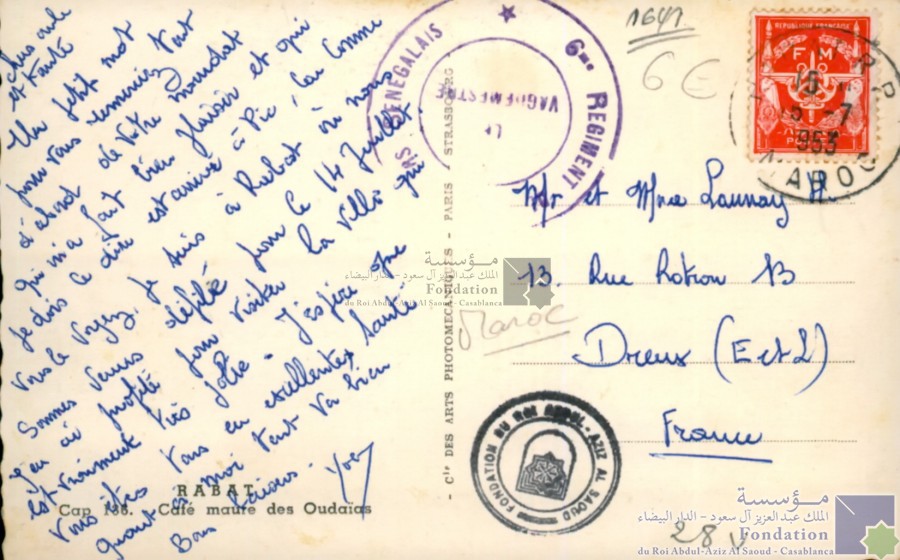 Un petit mot
pour vous remerciez tout
d'abord de votre mandat
qui m'a fait bien plaisir et qui
je dois le dire est arrivé à Pic. Comme
vous le voyez, je suis à Rabat où nous
sommes venus défilé pour le 14 Juillet
j'en ai profité pour visiter la ville qui
est vraiment très jolie. J'espère que
vous êtes tous en excellentes santé
quant à moi tout va bien
Bons baisers.
RABAT
Cap 138. - Café maure des Oudaïas
- Cie DES ARTS PHOTOMECANIQUES - PARIS - STRASBOURG
6me REGIMENT
SENEGALAIS
LE
VAGUEMESTRE
1641
6 €
REPUBLIQUE FRANÇAISE
F M
15
15 -7
953
MAROC
Mr et Mme Launay H.
13. Rue Rotrou 13
Dreux (E et L)
France
Maroc
FONDATION DU ROI ABDUL-AZIZ AL SAOUD
28 V
مؤسسة
الملك عبد العزيز آل سعود - الدار البيضاء
Fondation
du Roi Abdul-Aziz Al Saoud - Casablanca
مؤسسة
الملك عبد العزيز آل سعود - الدار البيضاء
Fondation
du Roi Abdul-Aziz Al Saoud - Casablanca